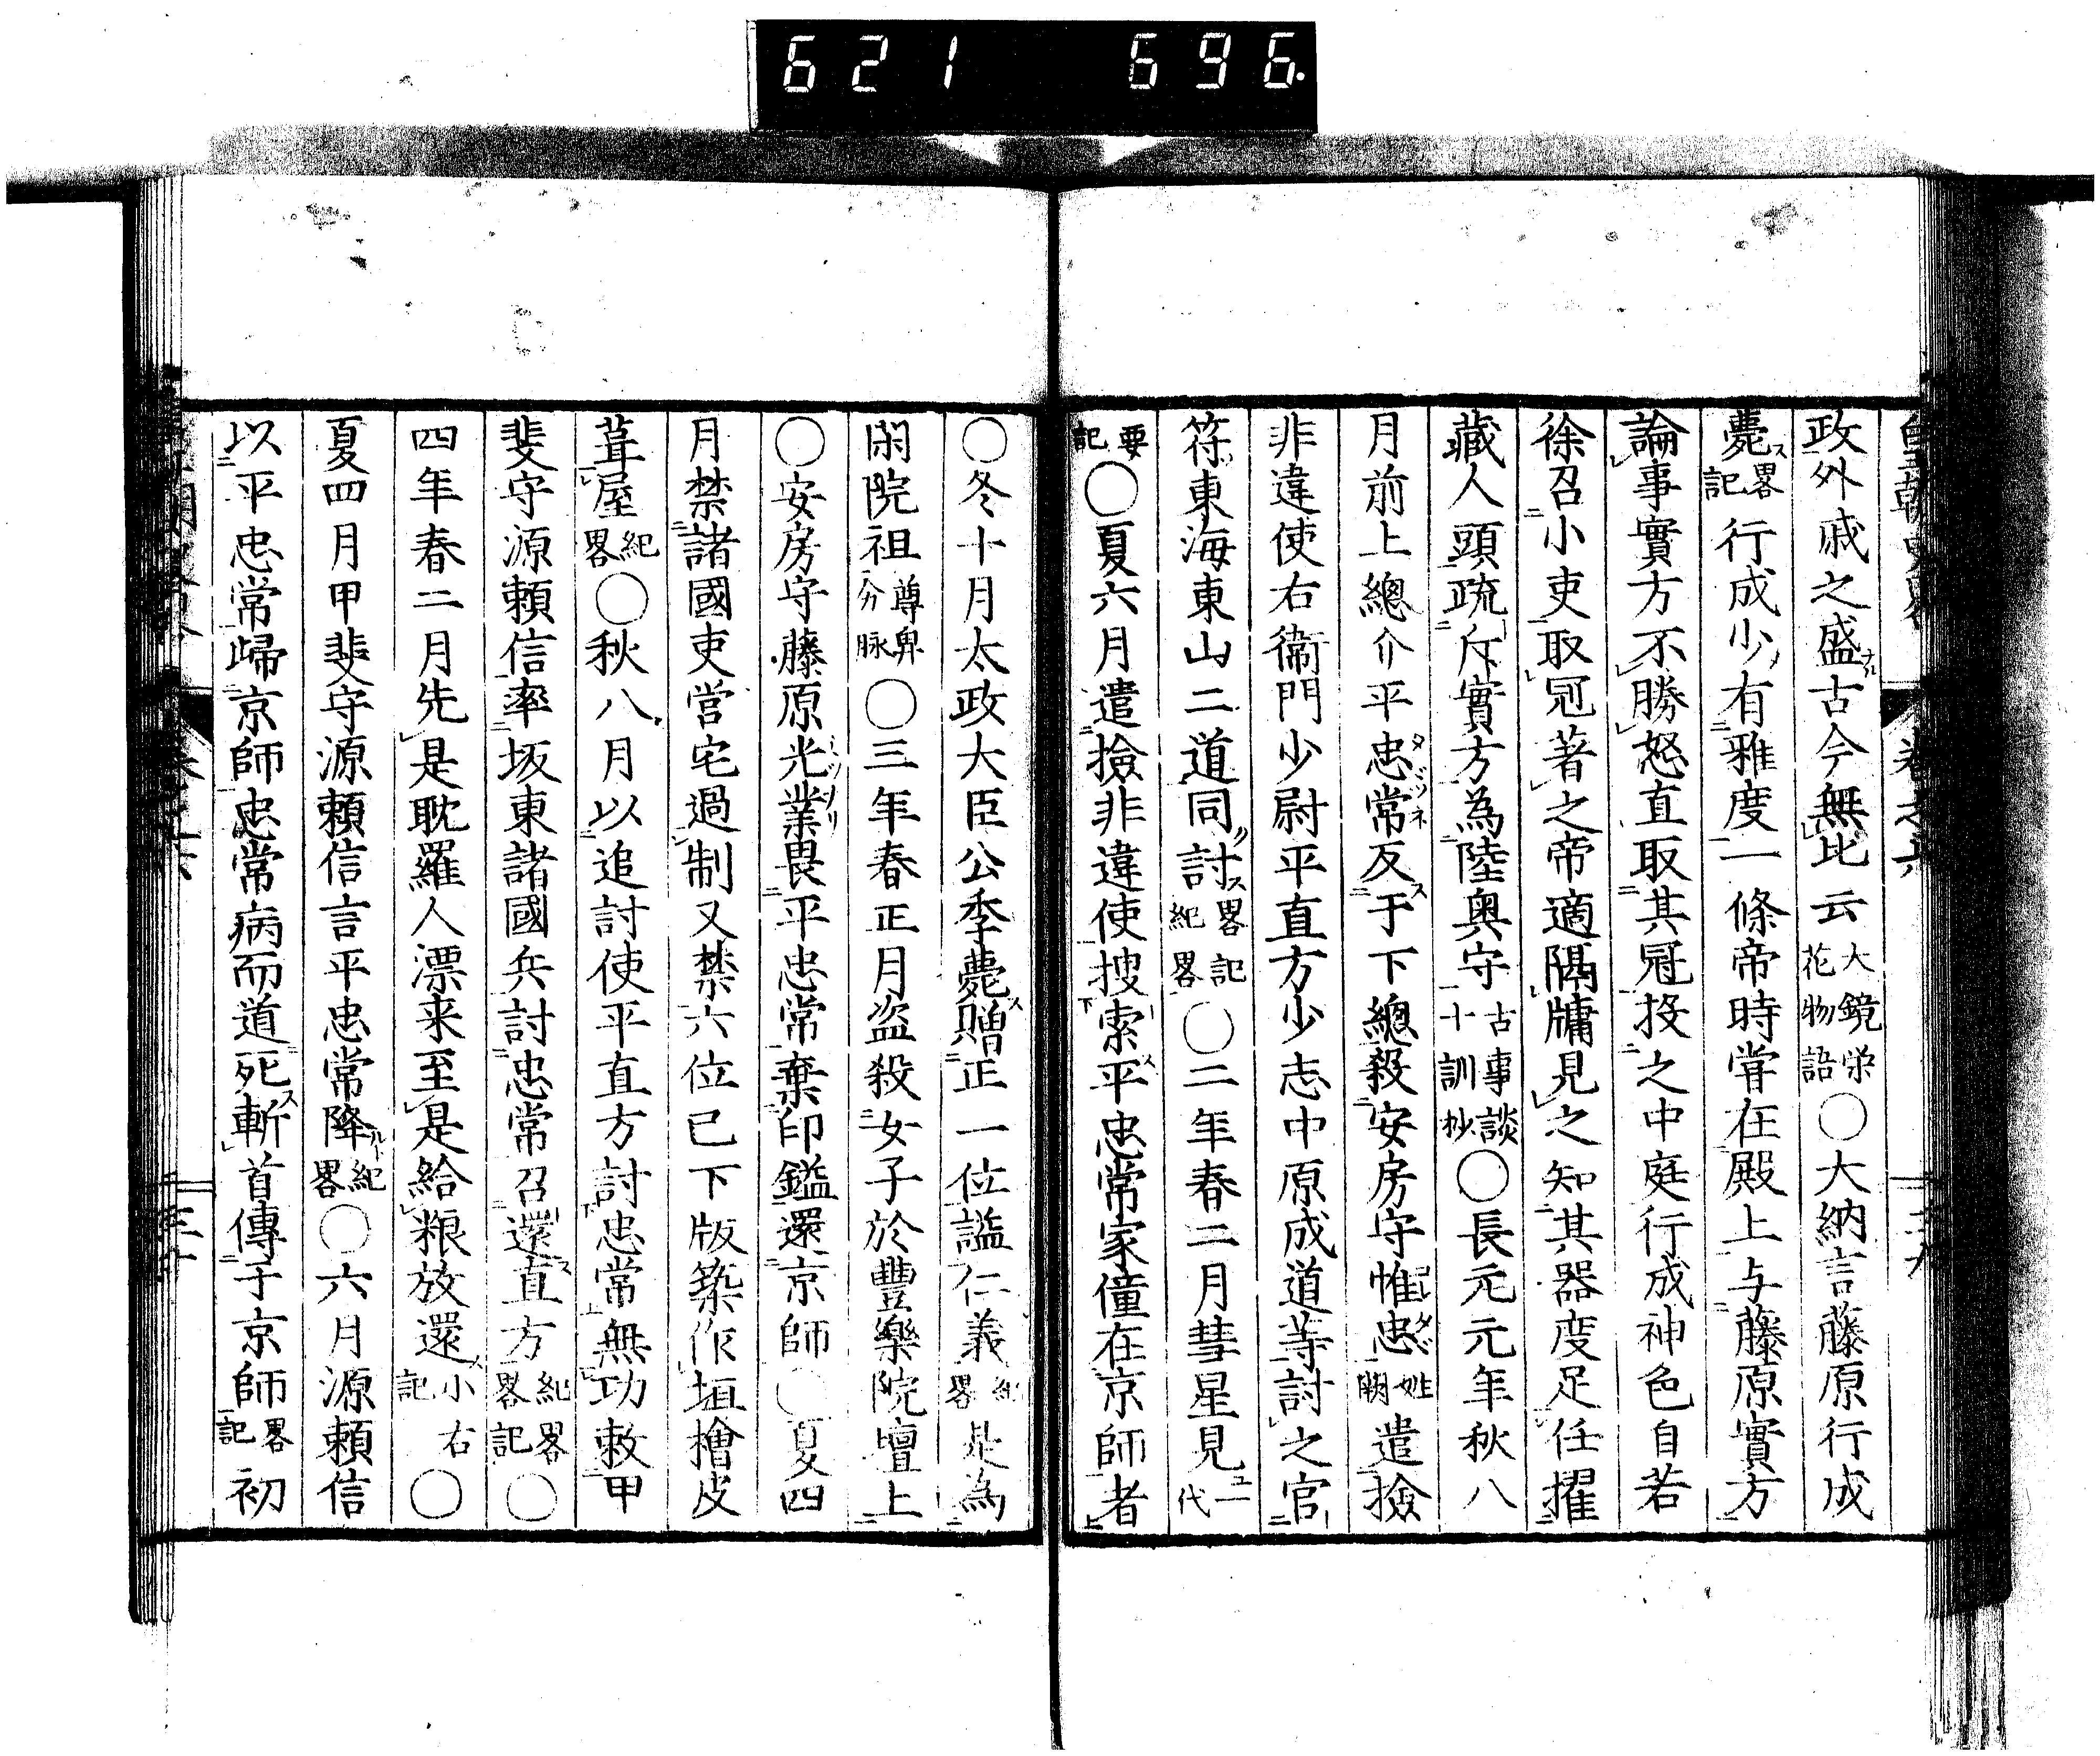 621 696.
政外戚之盛ナル古今無比云大鏡栄花物語〇大納言藤原行成
薨ス畧記行成少ノ有雅度一條帝時甞在殿上与藤原實方
論事實方不勝怒直取其冠投之中庭行成神色自若
徐召小吏取冠著之帝適隔牗見之知其器度足任擢
藏人頭疏斥實方為陸奥守古事談十訓抄〇長元元年秋八
月前上總介平忠常タヾツネ反ス于下總殺安房守惟忠コレタヾ姓闕遣撿
非違使右衞門少尉平直方少志中原成道等討之官
符東海東山二道同ク討ス畧記紀畧〇二年春二月彗星見ユ一代
要記〇夏六月遣撿非違使搜索ス平忠常家僮在京師者
〇冬十月太政大臣公季薨ス贈正一位謚仁義紀畧是為
閑院祖尊卑分脉〇三年春正月盗殺女子於豐樂院壇上
〇安房守藤原光業ミツナリ畏平忠常棄印鎰還京師〇夏四
月禁諸國吏営宅過制又禁六位已下版築作垣檜皮
葺屋紀畧〇秋八月以追討使平直方討忠常無功敕甲
斐守源頼信率坂東諸國兵討忠常召還ス直方紀畧畧記〇
四年春二月先是耽羅人漂来至是給粮放還ス小右記〇
夏四月甲斐守源頼信言平忠常降ルト紀畧〇六月源頼信
以平忠常歸京師忠常病而道死ス斬首傳于京師畧記初